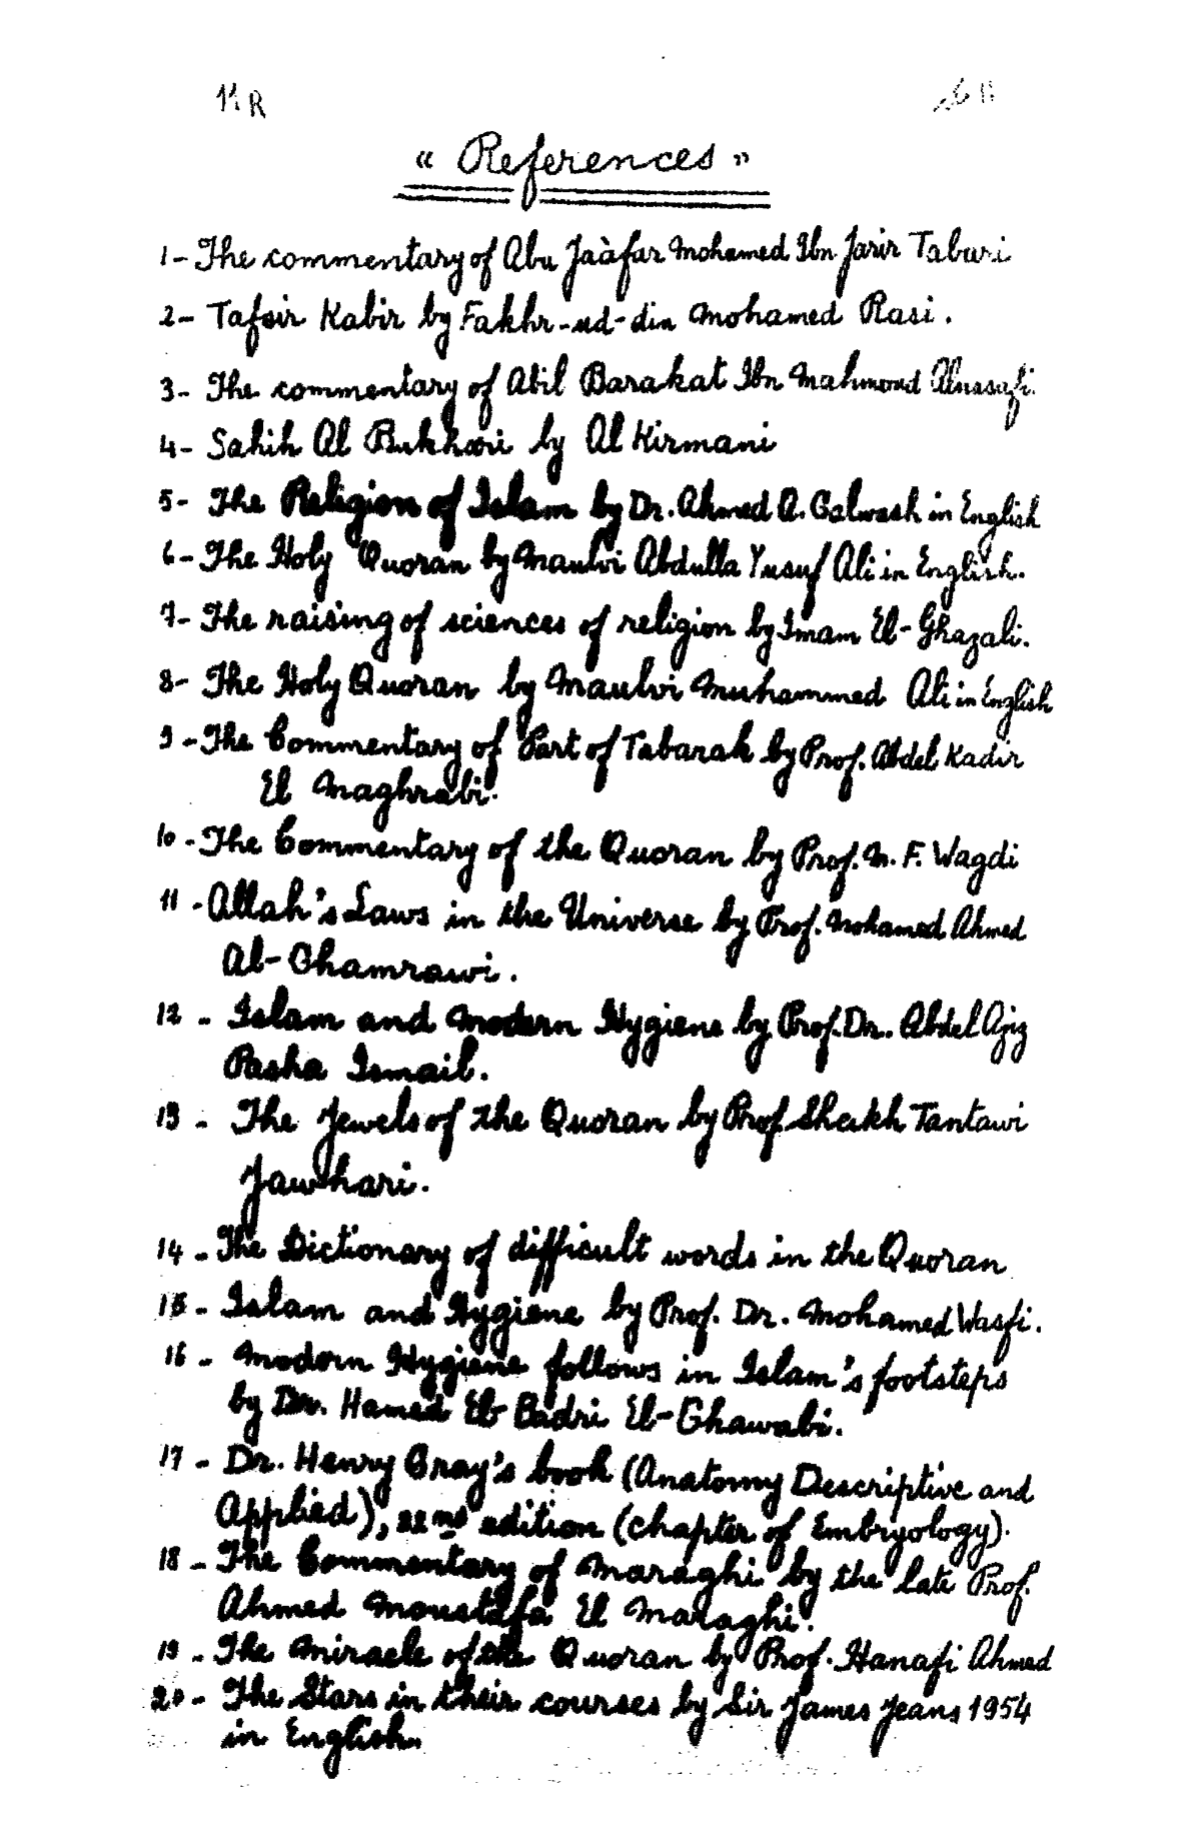 11R
« References »
1- The commentary of Abu Jaàfar Mohamed Ibn Jarir Tabari
2- Tafsir Kabir by Fakhr-ud-din Mohamed Rasi.
3- The commentary of Abil Barakat Ibn Mahmoud Alnasafi.
4- Sahih Al Bukhari by Al Kirmani
5- The Religion of Islam by Dr. Ahmed A. Galwash in English
6- The Holy Quoran by Maulvi Abdulla Yusuf Ali in English.
7- The raising of sciences of religion by Imam El-Ghazali.
8- The Holy Quoran by Maulvi Muhammed Ali in English
9- The Commentary of Part of Tabarak by Prof. Abdel Kadir
El Maghrabi.
10- The Commentary of the Quoran by Prof. M. F. Wagdi
11- Allah's Laws in the Universe by Prof. Mohamed Ahmed
Al-Ghamrawi.
12- Islam and Modern Hygiene by Prof. Dr. Abdel Aziz
Pasha Ismail.
13- The Jewels of the Quoran by Prof Sheikh Tantawi
Jawhari.
14- The Dictionary of difficult words in the Quoran
15- Islam and Hygiene by Prof. Dr. Mohamed Wasfi.
16- Modern Hygiene follows in Islam's footsteps
by Dr. Hamed El-Badri El-Ghawabi.
17- Dr. Henry Gray's book (Anatomy Descriptive and
Applied), 22nd edition (chapter of Embryology).
18- The Commentary of Maraghi by the late Prof.
Ahmed Moustafa El Maraghi.
19- The Miracle of the Quoran by Prof. Hanafi Ahmed
20- The Stars in their courses by Sir James Jeans 1954
in English.